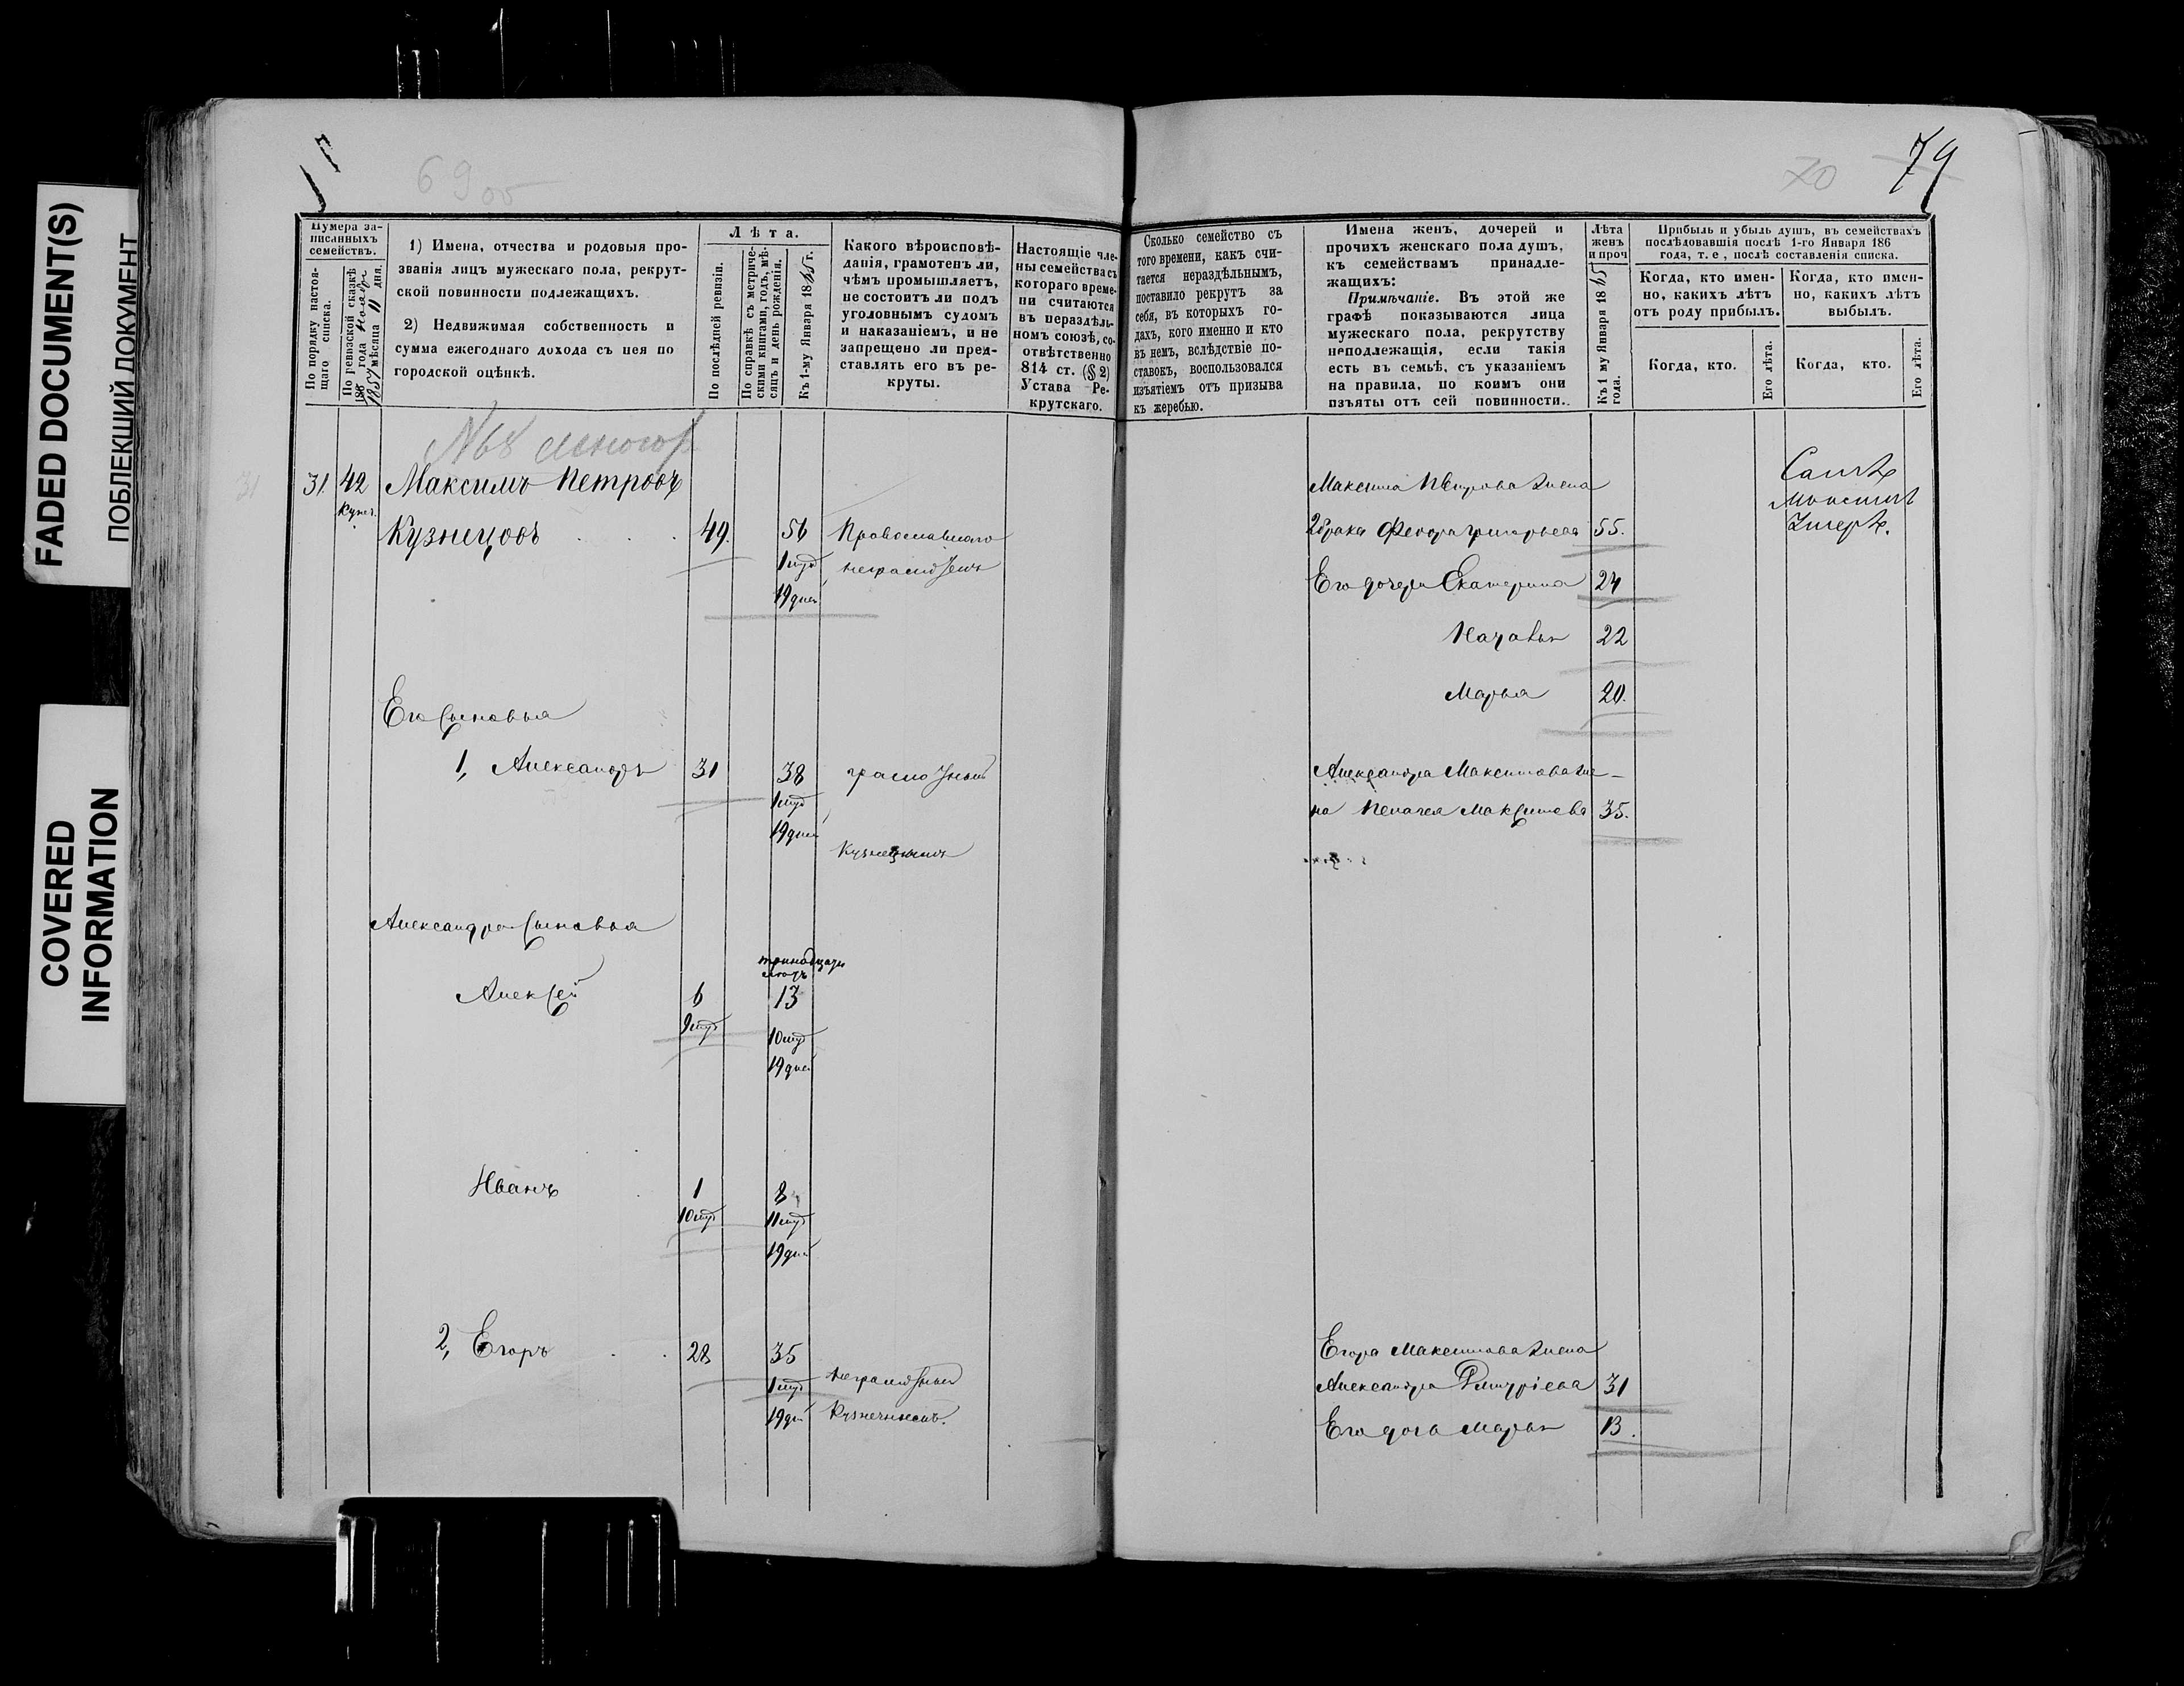 FADED DOCUMENT(S)
ПОБЛЕКШИЙ ДОКУМЕНТ
COVERED
INFORMATION
69 об
Нумера за-
писанныхъ
семействъ.
По порядку настоя-
щаго списка.
По ревизской сказкѣ
185 года Ноябр
1857 мѣсяца 11 дня.
1) Имена, отчества и родовыя про-
званія лицъ мужескаго пола, рекрут-
ской повинности подлежащихъ.
2) Недвижимая собственность и
сумма ежегоднаго дохода съ нея по
городской оцѣнкѣ.
Лѣта.
По послѣдней ревизіи.
По справкѣ съ метриче-
скими книгами, годъ, мѣ-
сяцъ и день рожденія.
Къ 1-му Января 1865 г.
Какого вѣроисповѣ-
данія, грамотенъ ли,
чѣмъ промышляетъ,
не состоитъ ли подъ
уголовнымъ судомъ
и наказаніемъ, и не
запрещено ли пред-
ставлять его въ ре-
круты.
Настоящіе чле-
ны семейства съ
котораго време-
ни считаются
въ нераздѣль-
номъ союзѣ, со-
отвѣтственно
814 ст. (§ 2)
Устава Ре-
крутскаго.
31 31. 42 Максимъ Петровъ
Кузн.
Кузнецовъ 49. 56 Православнаго
1 мѣс неграмотенъ
19 дней
Его сыновья
1, Александръ 31 38 грамотный
1 мѣс
19 дней
Кузнечнымъ
Александра сыновья
тринадцать
лѣтъ
Алексѣй 6 13
9 мѣс 10 мѣс
19 дней
Иванъ 1 8
10 мѣс 11 мѣс
19 дней
2, Егоръ 28 35
1 мѣс неграмотный
19 дней Кузнечнымъ.
70 79
Сколько семейство съ
того времени, какъ счи-
тается нераздѣльнымъ,
поставило рекрутъ за
себя, въ которыхъ го-
дахъ, кого именно и кто
въ немъ, вслѣдствіе по-
ставокъ, воспользовался
изъятіемъ отъ призыва
къ жеребью.
Имена женъ, дочерей и
прочихъ женскаго пола душъ,
къ семействамъ принадле-
жащихъ:
Примѣчаніе. Въ этой же
графѣ показываются лица
мужескаго пола, рекрутству
неподлежащія, если такія
есть въ семьѣ, съ указаніемъ
на правила, по коимъ они
изъяты отъ сей повинности.
Лѣта
женъ
и проч
Къ 1 му Января 1865
года.
Прибыль и убыль душъ, въ семействахъ
послѣдовавшія послѣ 1-го Января 186
года, т. е, послѣ составленія списка.
Когда, кто имен-
но, какихъ лѣтъ
отъ роду прибылъ.
Когда, кто имен-
но, какихъ лѣтъ
выбылъ.
Когда, кто.
Его лѣта.
Когда, кто.
Его лѣта.
Максима Петрова жена
2 брака Федора Григорьева 55.
Его дочери Екатерина 24
Наталья 22
Марья 20.
Александра Максимова же-
на Пелагея Максимова 35.
Егора Максимова жена
Александра Дмитріева 31
Его дочь Марья 13.
Самъ
Максимъ
Умеръ.